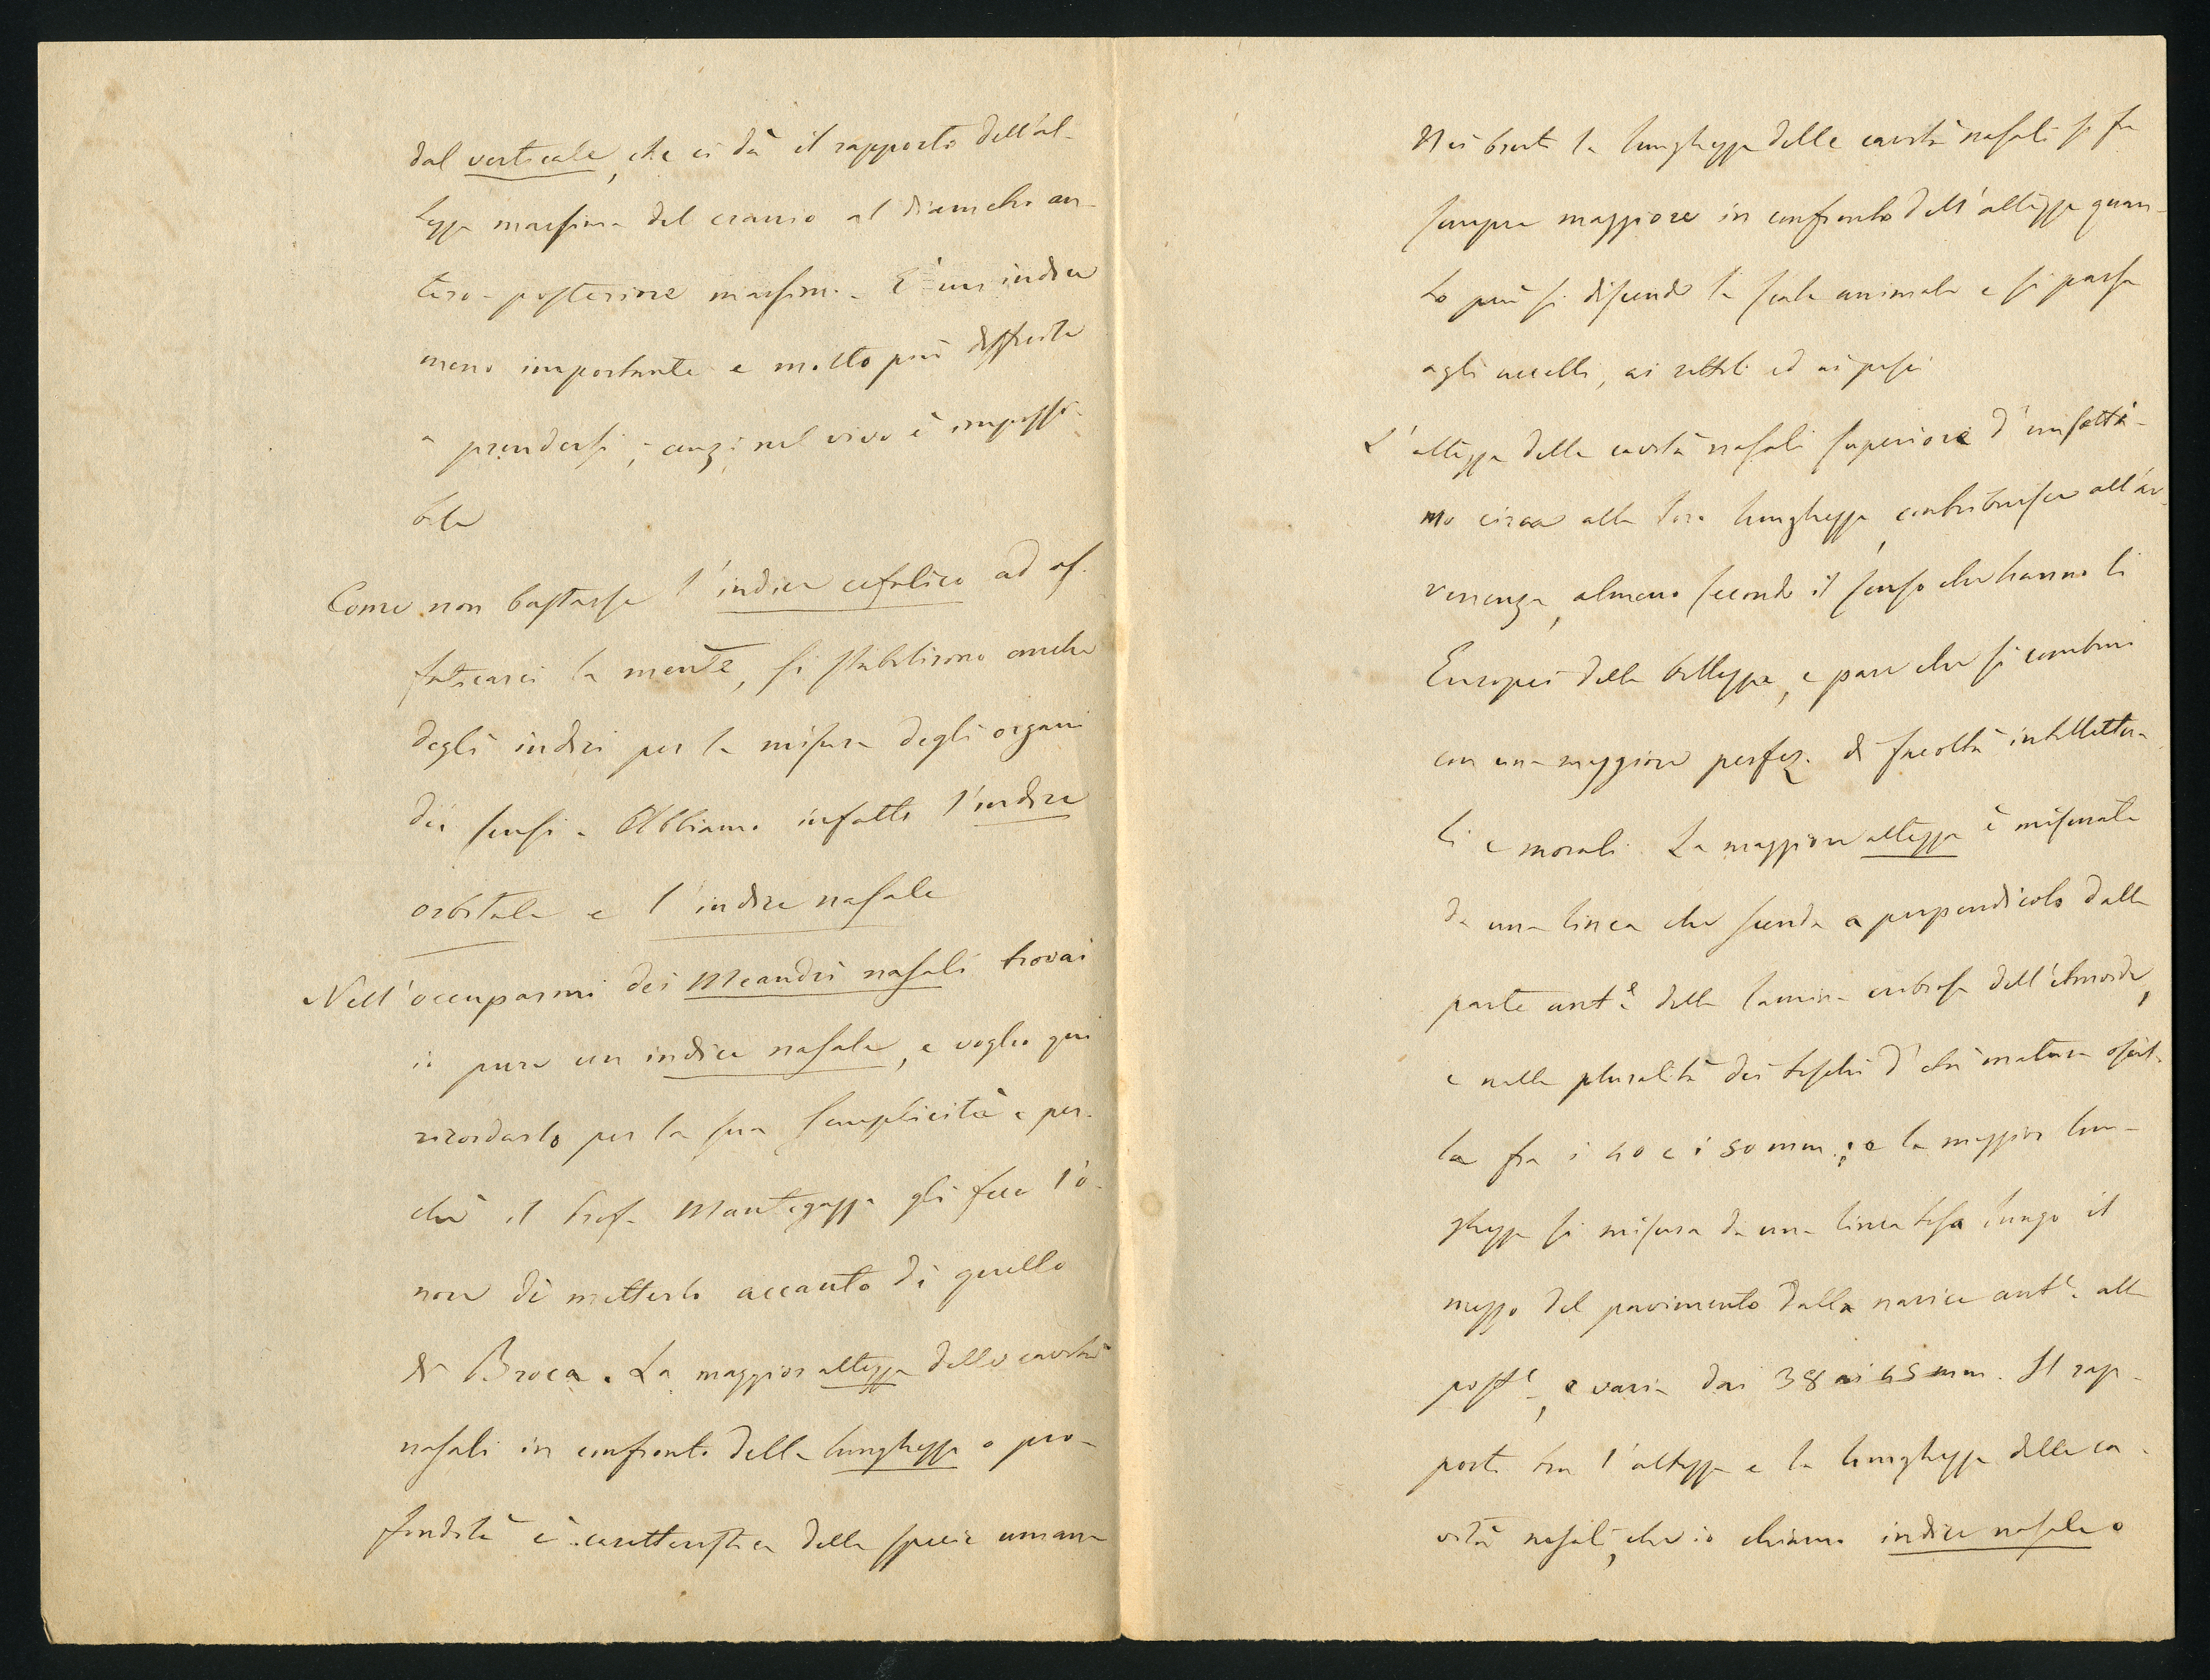 dal verticale, che ci dà il rapporto dell'al-
tezza massima del cranio al diametro an-
tero-posteriore massimo. È un indice
meno importante e molto più difficile
a prendersi; anzi nel vivo è impossi-
bile
Come non bastasse l'indice cefalico ad af-
faticarci la mente, si stabilirono anche
degli indici per la misura degli organi
dei sensi. Abbiamo infatti l'indice
orbitale e l'indice nasale
Nell'occuparmi dei Meandri nasali trovai
io pure un indice nasale, e voglio qui
ricordarlo per la sua semplicità e per-
chè il Prof. Mantegazza gli fece l'o-
nore di metterlo accanto di quello
di Broca. La maggior altezza delle cavità
nasali in confronto della lunghezza o pro-
fondità è caratteristica della specie umana
Nei bruti la lunghezza delle cavità nasali si fa
sempre maggiore in confronto dell'altezza quan-
to più si discende la scala animale e si passa
agli uccelli, ai rettili ed ai pesci
L'altezza delle cavità nasali superiore d'un setti-
mo circa alla loro lunghezza, contribuisce all'av-
venenza, almeno secondo il senso che hanno li
Europei della bellezza, e pare che si combini
con una maggiore perfez. di facoltà intellettua-
li e morali. La maggiore altezza è misurata
da una linea che scenda a perpendicolo dalla
parte ant.e della lamina cribrosa dell'etmoide,
e nella pluralità dei teschi d'età matura oscil-
la fra i 40 e i 50 mm.; e la maggior lun-
ghezza si misura da una linea tesa lungo il
mezzo del pavimento dalla narice ant.e alla
post.e, e varia dai 38 ai 45 mm. Il rap-
porto tra l'altezza e la lunghezza delle ca-
vità nasali, che io chiamo indice nasale o